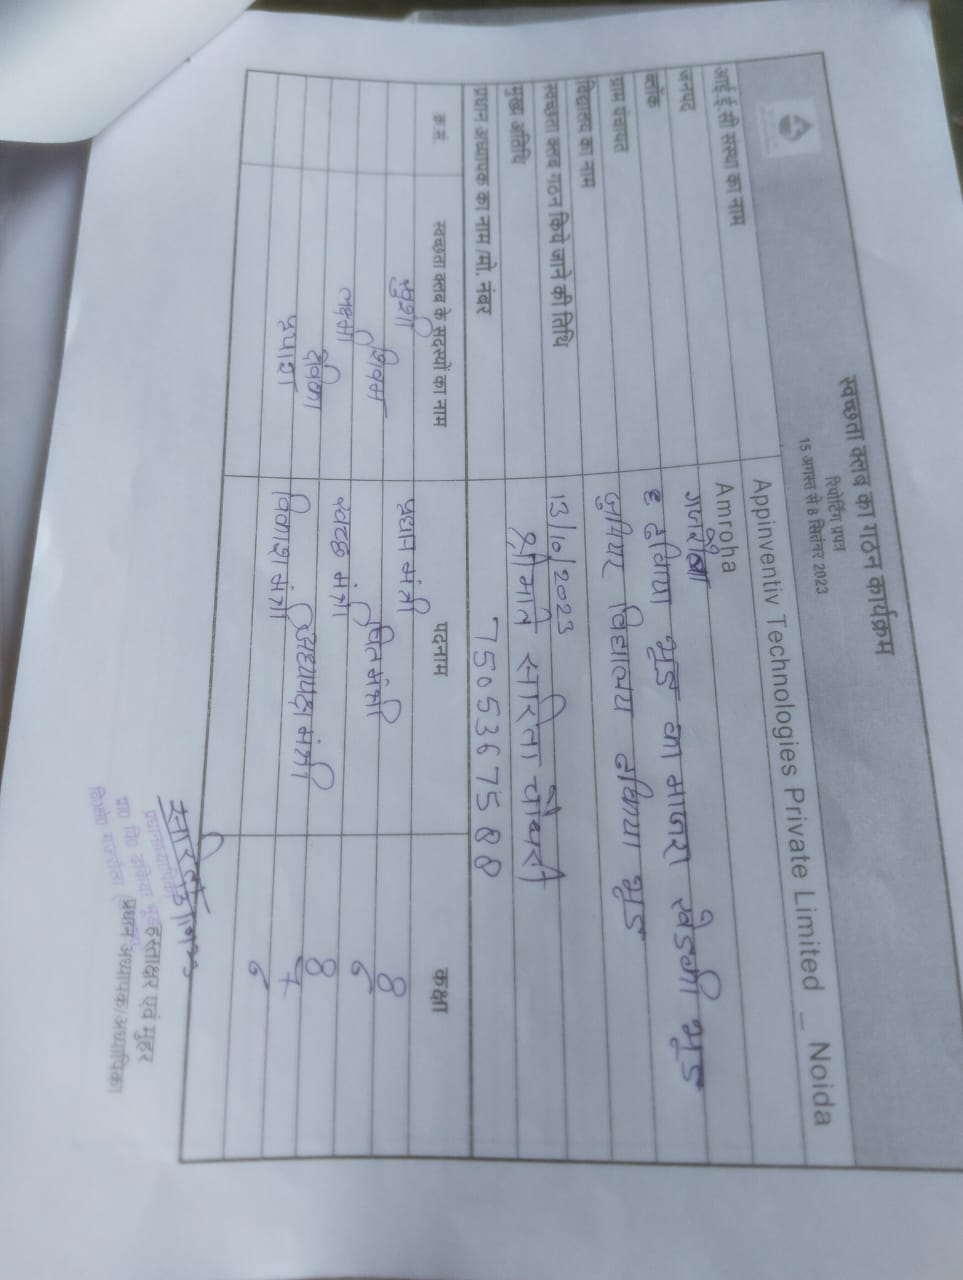 स्वच्छता क्लब का गठन कार्यक्रम
रिपोर्टिंग प्रपत्र
15 अगस्त से 8 सितंबर 2023
आई ई सी संस्था का नाम Appinventiv Technologies Private Limited _ Noida
जनपद Amroha
ब्लॉक गजरौला
ग्राम पंचायत भुड का माजरा भुड
विद्यालय का नाम विद्यालय भुड
स्वच्छता क्लब गठन किये जाने की तिथि 13/10/2023
मुख्य अतिथि श्रीमति सरिता चौधरी
प्रधान अध्यापक का नाम /मो. नंबर 7505367588
क.स. स्वच्छता क्लब के सदस्यों का नाम पदनाम कक्षा
खुशी प्रधान मंत्री 8
शिवम वित मंत्री 6
लक्ष्मी स्वच्छ मंत्री 8
मंत्री 7
विकाश मंत्री 6
हस्ताक्षर एवं मुहर
प्रधान अध्यापक/अध्यापिका